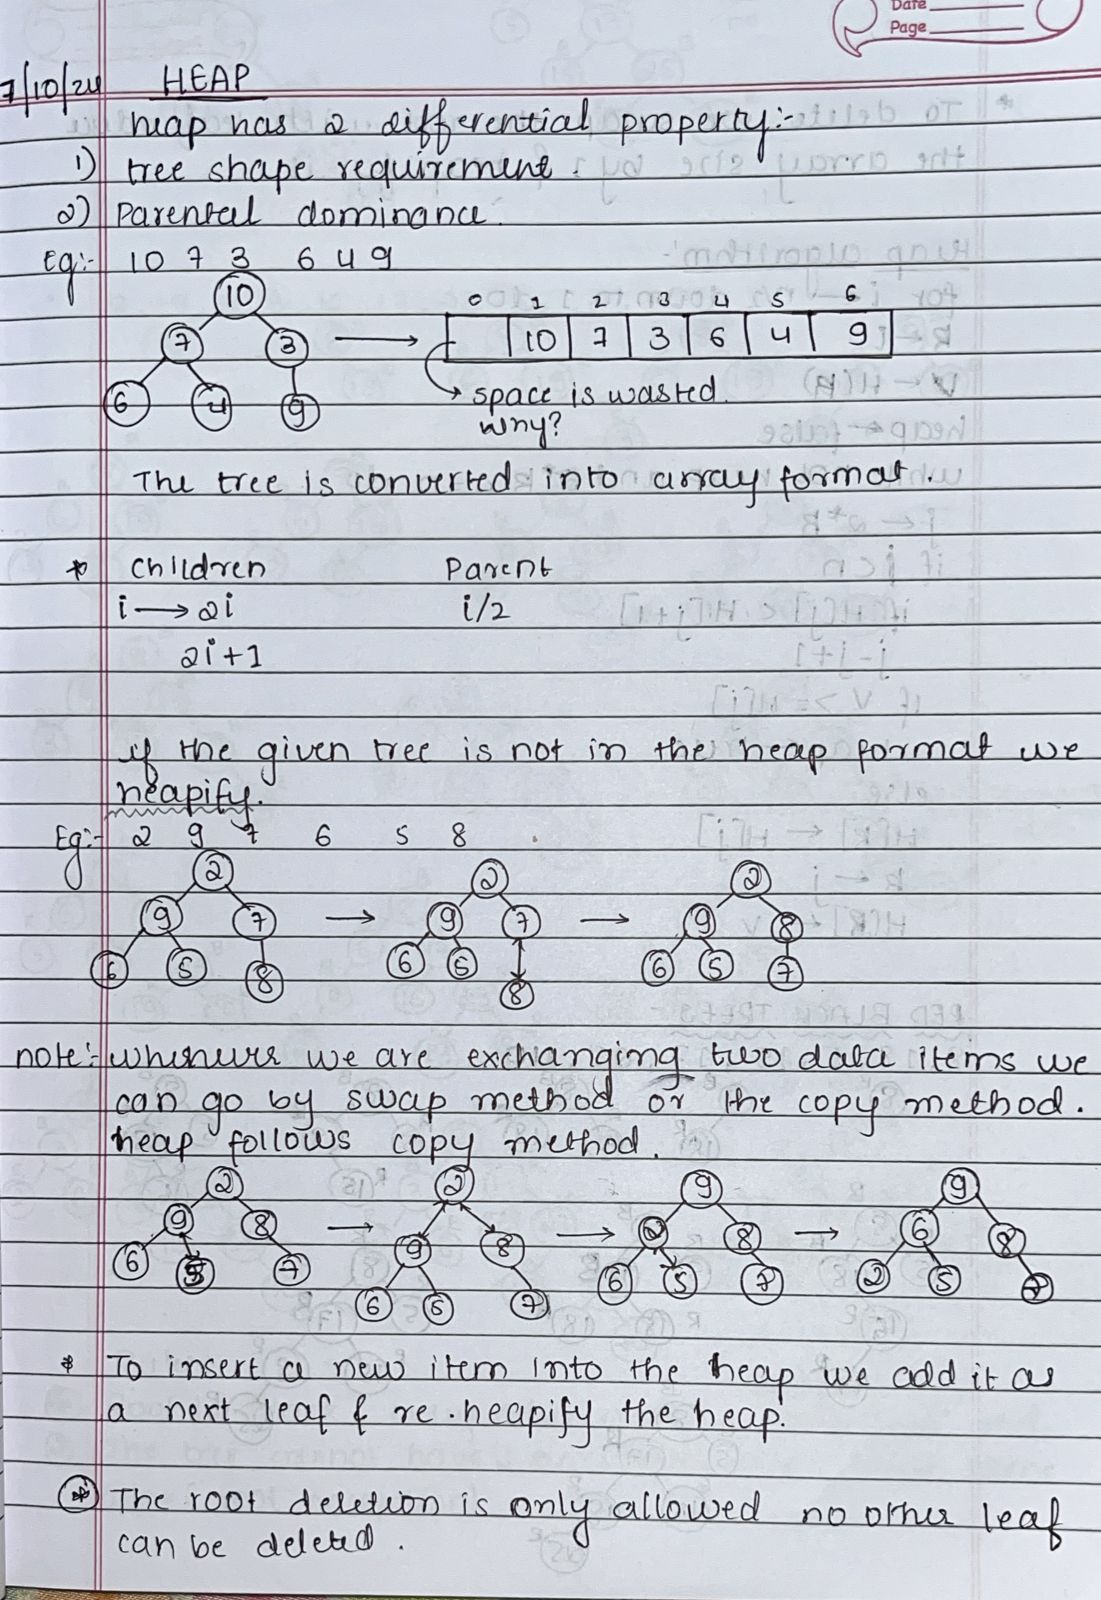 Date
Page
7/10/24 HEAP
heap has 2 differential property:-
1) tree shape requirement.
2) Parental dominance.
Eg:- 10 7 3 6 4 9
10
0 1 2 3 4 5 6
7 3 → 10 7 3 6 4 9
6 4 9 → space is wasted.
why?
The tree is converted into array format.
* Children Parent
i → 2i i/2
2i+1
if the given tree is not in the heap format we
heapify.
Eg:- 2 9 7 6 5 8
2 2 2
9 7 → 9 7 → 9 8
6 5 8 6 5 8 6 5 7
note:- whenever we are exchanging two data items we
can go by swap method or the copy method.
heap follows copy method.
2 2 9 9
9 8 → 9 8 → 2 8 → 6 8
6 5 7 6 5 7 6 5 7 2 5 7
* To insert a new item into the heap we add it as
a next leaf & re-heapify the heap.
* The root deletion is only allowed no other leaf
can be deleted.